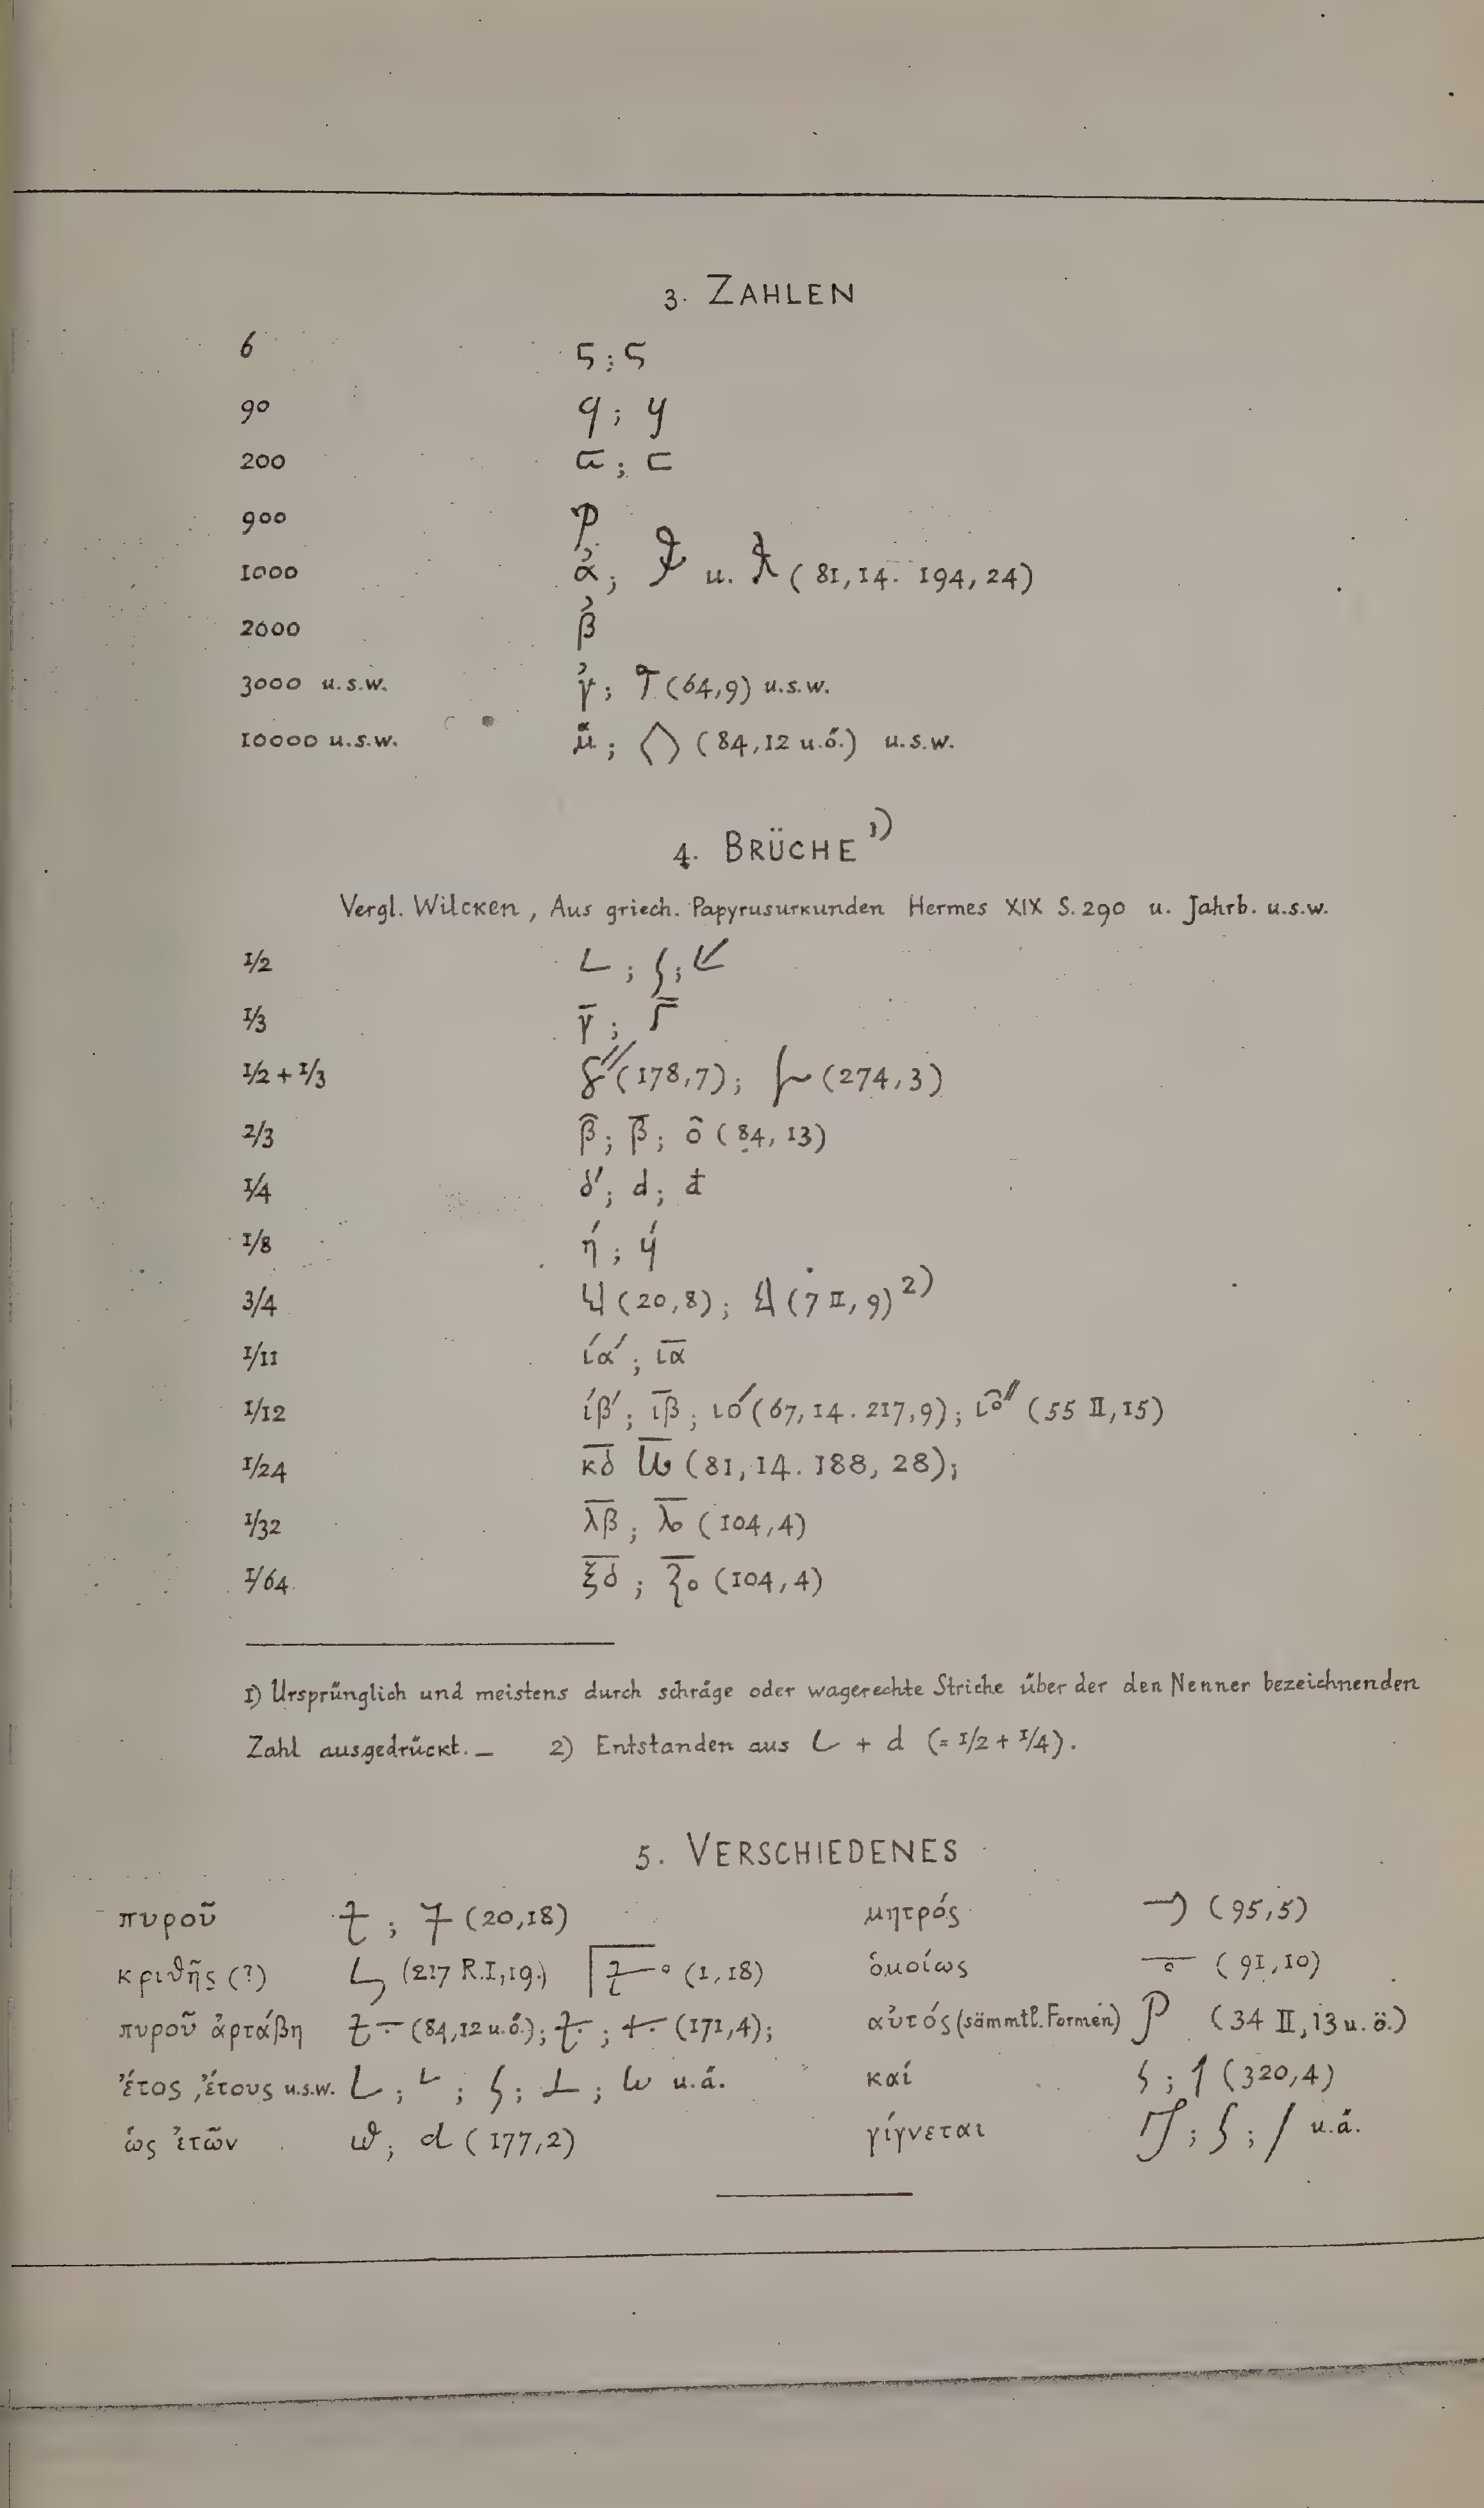 3. ZAHLEN
6 ϛ ; ϛ
90 ϥ ; y
200 ; ⊏
900
1000 ͗α ; u. ( 81,14. 194,24)
2000 ͗β
3000 u.s.w. ͗γ ; (64,9) u.s.w.
10000 u.s.w. ; ( 84,12 u.ö.) u.s.w.
4. BRÜCHE 1)
Vergl. Wilcken, Aus griech. Papyrusurkunden Hermes XIX S. 290 u. Jahrb. u.s.w.
1/2 L ; ;
1/3 γ̅ ;
1/2 + 1/3 (178,7) ; (274,3)
2/3 β̂ ; β̅ ; ô ( 84, 13)
1/4 δ′ ; d ; đ
1/8 ή ; ύ
3/4 (20,8) ; (7 II, 9) 2)
1/11 ία′ ; ι̅α̅
1/12 ίβ′ ; ι̅β ; ιό (67,14. 217,9) ; (55 II,15)
1/24 κ̅δ̅ (81,14. 188, 28);
1/32 λ̅β̅ ; (104,4)
1/64 ξ̅δ̅ ; (104,4)
1) Ursprünglich und meistens durch schräge oder wagerechte Striche über der den Nenner bezeichnenden
Zahl ausgedrückt. — 2) Entstanden aus L + d (= 1/2 + 1/4).
5. VERSCHIEDENES
πυροῦ ; (20,18) μητρός (95,5)
κριθῆς (?) (217 R.I,19.) (1,18) ὁμοίως (91,10)
πυροῦ ἀρτάβη (84,12 u.ö.); ; (171,4); αὐτός (sämmtl. Formen) (34 II, 13 u. ö.)
ἔτος, ἔτους u.s.w. L ; L ; ; ; u.ä. καί ; (320,4)
ὡς ἐτῶν ; d ( 177,2) γίγνεται ; ; / u.ä.